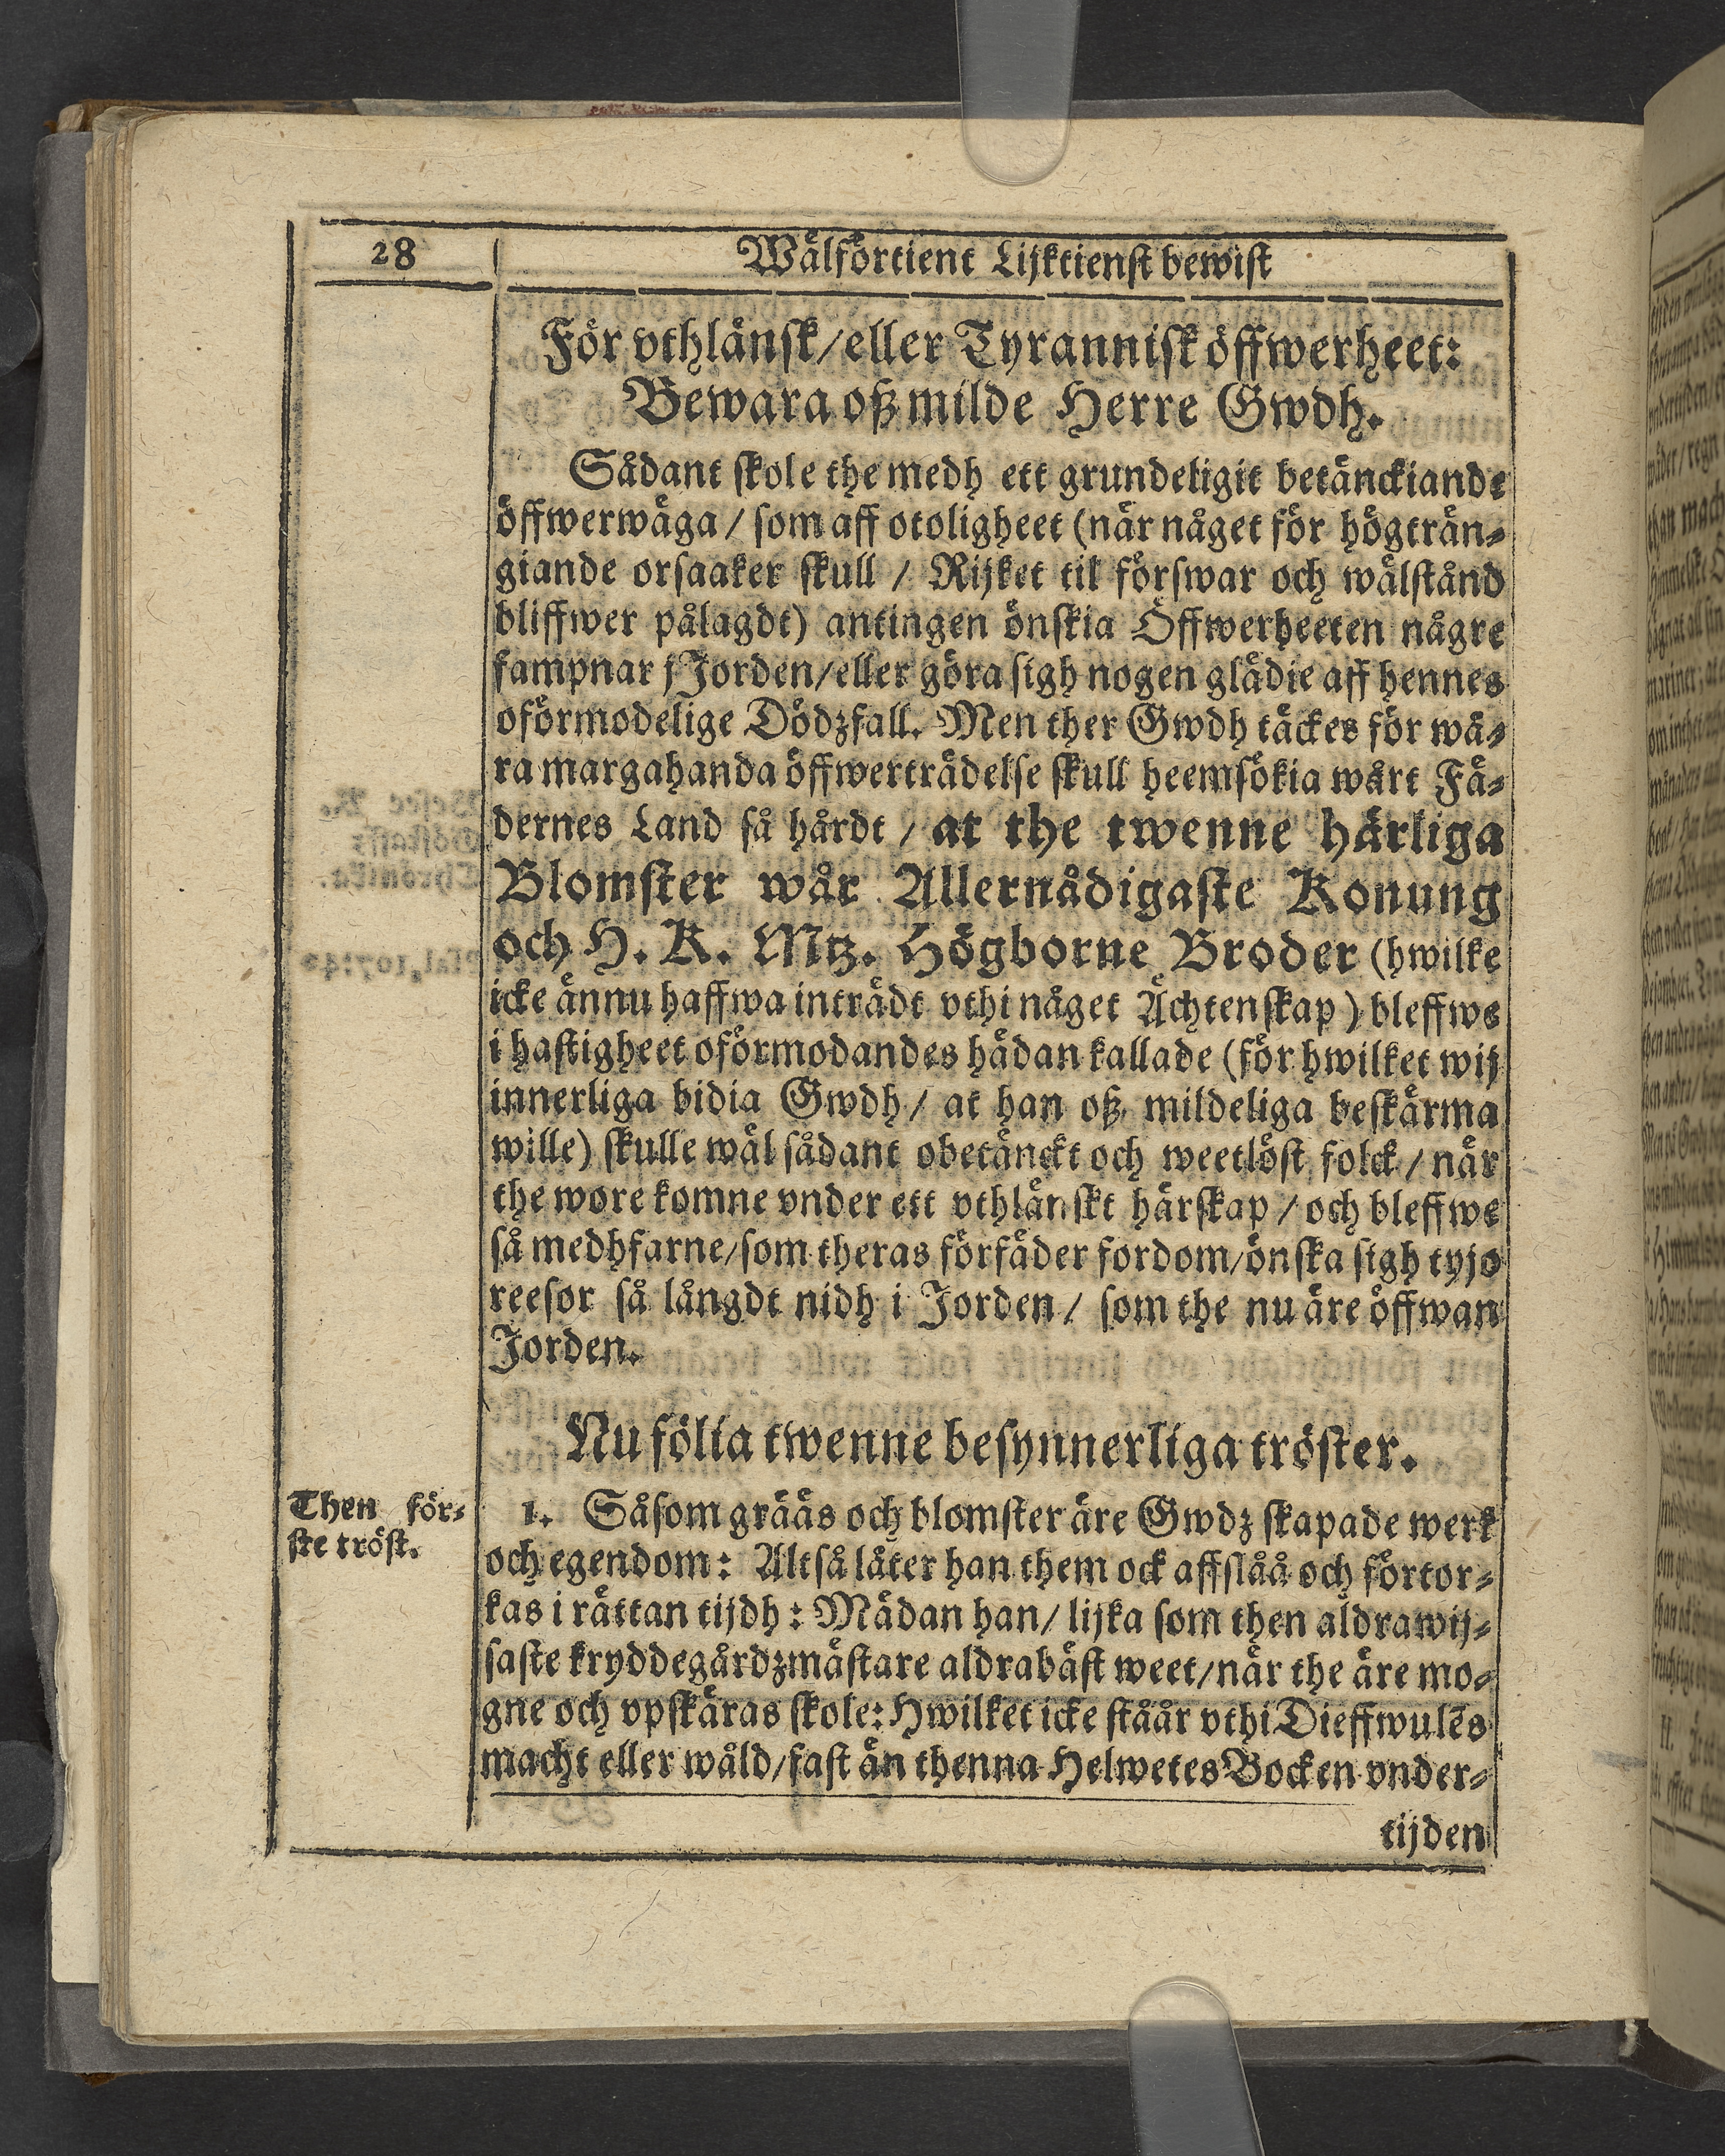 28
Wälförtient Lijktienst bewist
För vthlänsk/eller Tyrannisk öffwerheet:
Bewara oß milde Herre Gwdh.
Sådant skole the medh ett grundeligit betänckiande
öffwerwäga / som aff otoligheet (när något för högträn-
giande orsaaker skull / Rijket til förswar och wälstånd
bliffwer pålagdt) antingen önskia Öffwerheeten någre
fampnar j Jorden/eller göra sigh nogen glädie aff hennes
oförmodelige Dödzfall. Men ther Gwdh täckes för wå-
ra margahanda öffwerträdelse skull heemsökia wårt Fä-
dernes Land så hårdt / at the twenne härliga
Blomster wår Allernådigaste Konung
och H. K. Mtz. Högborne Broder (hwilke
icke ännu haffwa inträdt vthi någet Ächtenskap) bleffwe
i hastigheet oförmodandes hädan kallade (för hwilket wij
innerliga bidia Gwdh / at han oß mildeliga beskärma
wille) skulle wäl sådant obetänckt och weetlöst folck / när
the wore komne vnder ett vthlänskt härskap / och bleffwe
så medhfarne/som theras förfäder fordom/önska sigh tyjo
reesor så långdt nidh i Jorden / som the nu äre öffwan
Jorden.
Nu fölia twenne besynnerliga tröster.
Then för-
ste tröst.
1. Såsom grääs och blomster äre Gwdz skapade werk
och egendom: Altså låter han them ock affslåå och förtor-
kas i rättan tijdh: Mädan han/ lijka som then aldrawij-
saste kryddegårdzmästare aldrabäst weet/när the äre mo-
gne och vpskäras skole: Hwilket icke ståår vthi Dieffwulēs
macht eller wåld/fast än thenna Helwetes Bocken vnder-
tijden